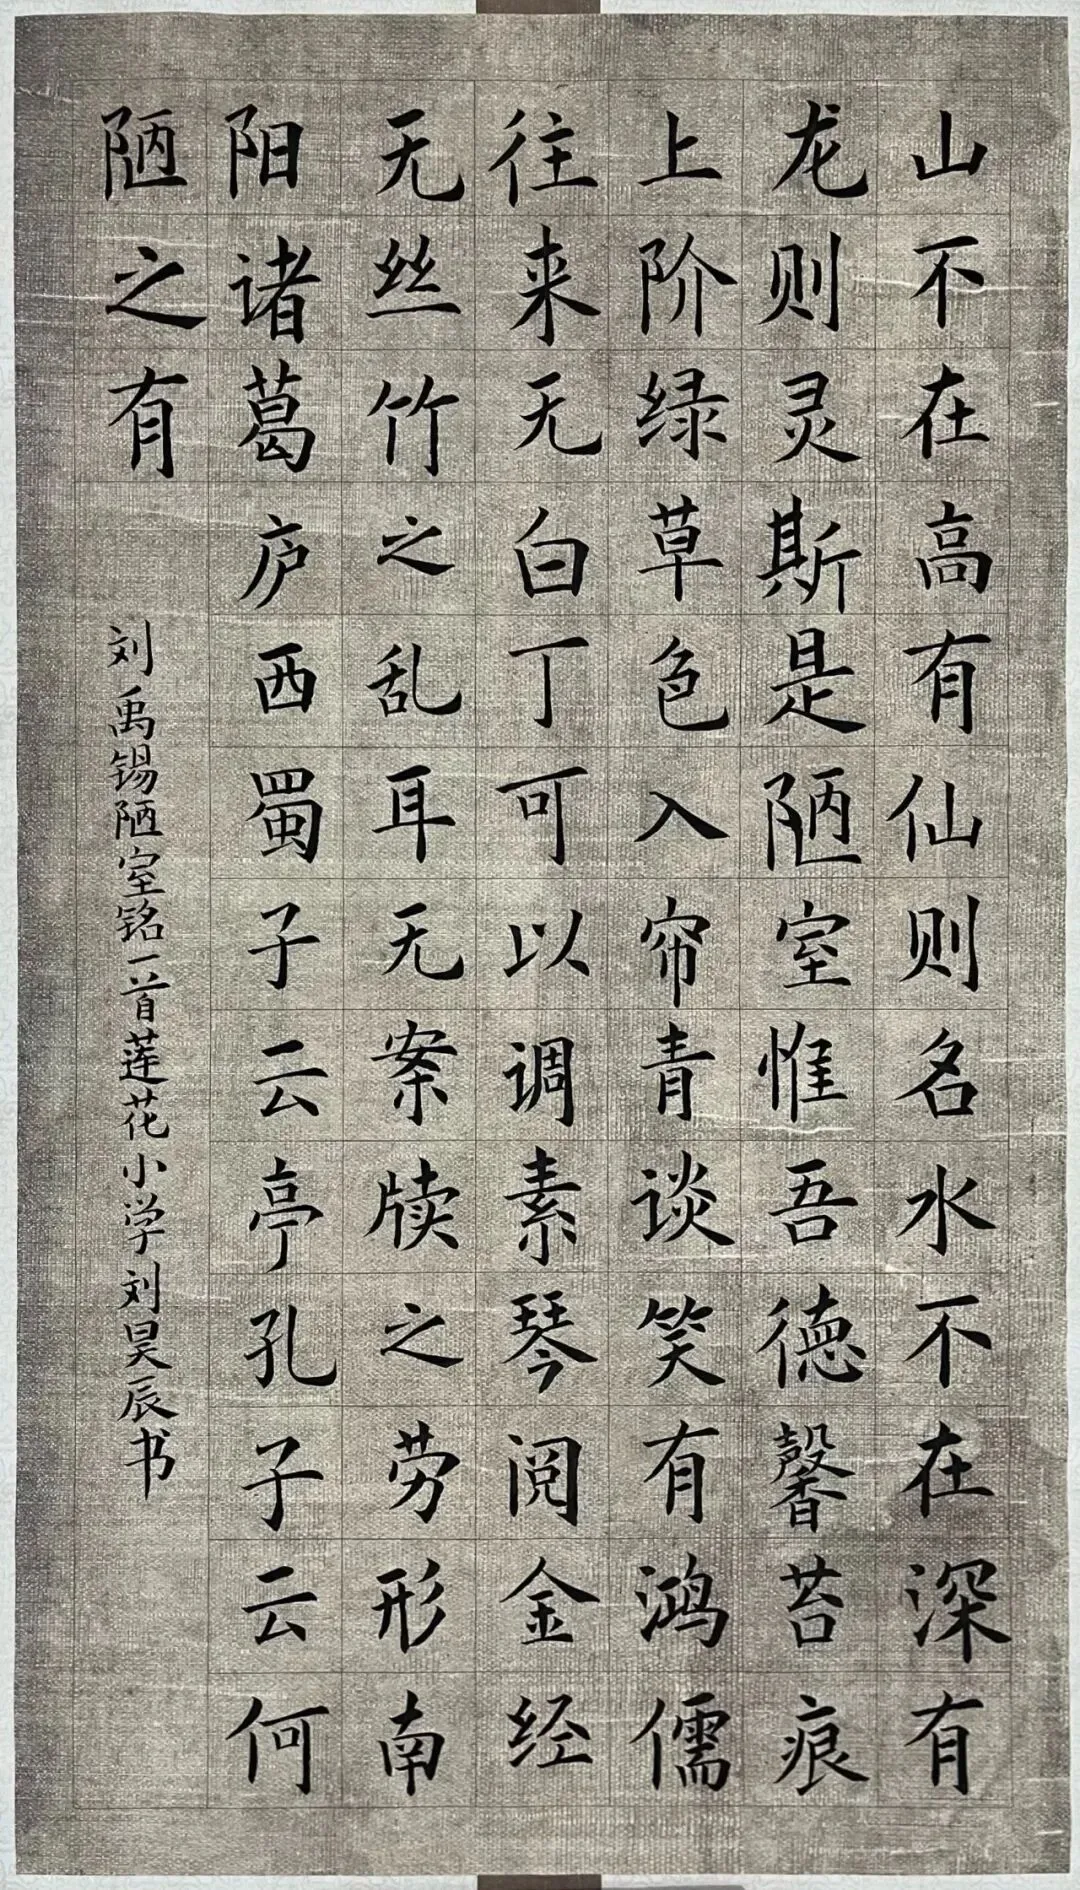 山不在高有仙则名水不在深有
龙则灵斯是陋室惟吾德馨苔痕
上阶绿草色入帘青谈笑有鸿儒
往来无白丁可以调素琴阅金经
无丝竹之乱耳无案牍之劳形南
阳诸葛庐西蜀子云亭孔子云何
陋之有
刘禹锡陋室铭一首莲花小学刘昊辰书